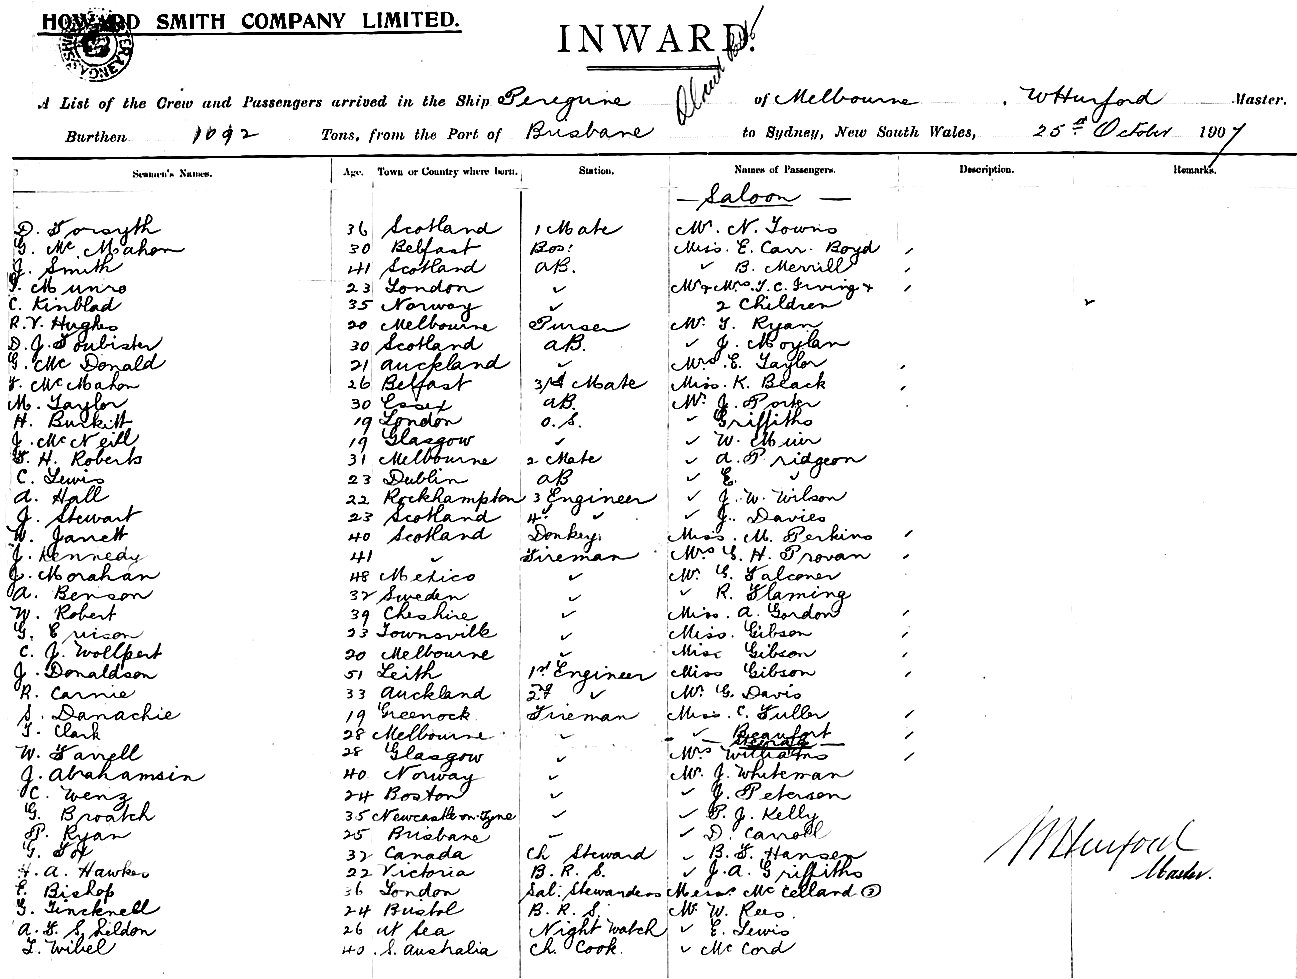 HOWARD SMITH COMPANY LIMITED.
INWARD.
A List of the Crew and Passengers arrived in the Ship Peregrine of Melbourne, W Hurford Master.
Burthen 1092 Tons, from the Port of Brisbane to Sydney, New South Wales, 25th October 1907
Seamen's Names. Age. Town or Country where born. Station. Names of Passengers. Description. Remarks.
— Saloon —
D. Forsyth 36 Scotland 1 Mate Mr. N. Towns
G. Mc Mahon 30 Belfast Bos: Miss. E. Carr. Boyd
J. Smith 41 Scotland aB. ✓ B. Merrill
T. Munro 23 London ✓ Mr & Mrs. T. C. Irving &
C. Kinblad 35 Norway ✓ 2 Children
R. V. Hughes 20 Melbourne Purser Mr. T. Ryan
D. J. Foubister 30 Scotland aB. ✓ J. Moylan
G. Mc Donald 21 Auckland ✓ Mrs. E. Taylor
F. Mc Mahon 26 Belfast 3rd Mate Miss. K. Black
M. Taylor 30 Essex aB. Mr. J. Porter
H. Burkitt 19 London O.S. ✓ Griffiths
J. Mc Neill 19 Glasgow ✓ ✓ W. Muir
F. H. Roberts 31 Melbourne 2 Mate ✓ A. Pridgeon
C. Lewis 23 Dublin aB ✓ E. ✓
A. Hall 22 Rockhampton 3 Engineer ✓ J. W. Wilson
J. Stewart 23 Scotland 4th ✓ ✓ J. Davies
W. Jarrett 40 Scotland Donkey. Miss. M. Perkins
J. Kennedy 41 ✓ Fireman Mrs E. H. Provan
J. Morahan 48 Mexico ✓ Mr. G. Falconer
A. Benson 32 Sweden ✓ ✓ R. Flaming
W. Robert 39 Cheshire ✓ Miss. A. Gordon
G. 23 Townsville ✓ Miss. Gibson
C. J. Wollpert 20 Melbourne ✓ Miss Gibson
J. Donaldson 51 Leith 1st Engineer Miss Gibson
R. Carnie 33 Auckland 2nd ✓ Mr. G. Davis
S. Danachie 19 Greenock Fireman Miss. C. Fuller
T. Clark 28 Melbourne ✓ ✓ Beaufort
W. Farrell 28 Glasgow ✓ Mrs Williams
J. Abrahamsin 40 Norway ✓ Mr. J. Whiteman
C. Wenz 24 Boston ✓ ✓ J. Petersen
G. Broatch 35 Newcastle on Tyne ✓ P. J. Kelly
P. Ryan 25 Brisbane ✓ ✓ D. Carroll
G. Fox 32 Canada Ch Steward ✓ B. F. Hansen
H. A. Hawkes 22 Victoria B. R. S. ✓ J. A. Griffiths
E. Bishop 36 London Sal: Stewardess Messrs. Mc Celland (2)
G. Tincknell 24 Bristol B. R. S. Mr. W. Rees.
A. F. S. Sildon 26 at Sea Night Watch ✓ E. Lewis
T. Wibel 40 S. Australia Ch. Cook. ✓ Mc Cord
W Hurford
Master.